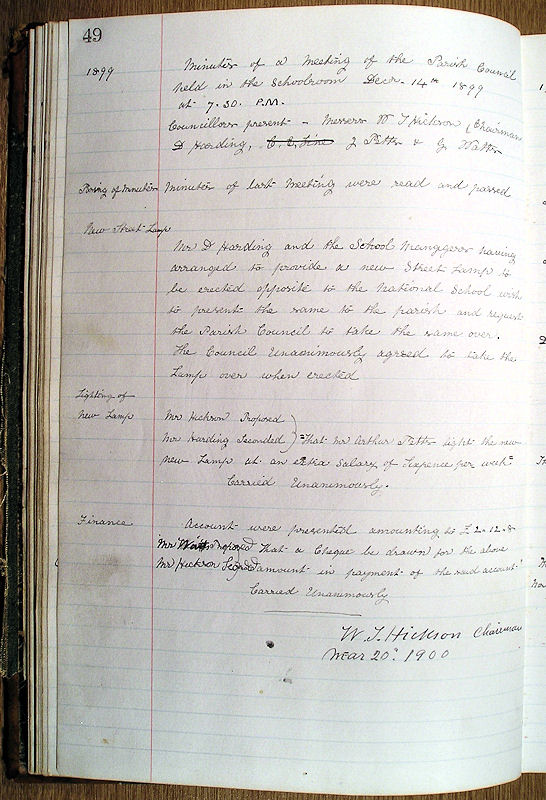 49
1899
Minutes of a Meeting of the Parish Council
held in the Schoolroom Decr. 14th 1899
at 7.30. P.M.
Councillors present - Messrs W T Hickson (Chairman
D Harding, C. E. Line J Potts & G Watts
Passing of Minutes Minutes of last Meeting were read and passed
New Street Lamp
Mr D Harding and the School Managers having
arranged to provide a new Street Lamp to
be erected opposite to the National School wish
to present the same to the parish and request
the Parish Council to take the same over.
The Council Unanimously agreed to take the
Lamp over when erected
Lighting of
New Lamp Mr Hickson Proposed
Mr Harding Seconded } "That Mr Arthur Potts light the new
new Lamp at an extra Salary of Sixpence per week"
Carried Unanimously.
Finance Account were presented amounting to £ 2-12-8
Mr Watts Proposed That a Cheque be drawn for the above
Mr Hickson amount in payment of the said account
Carried Unanimously
W. T. Hickson Chairman
Mar 20th 1900